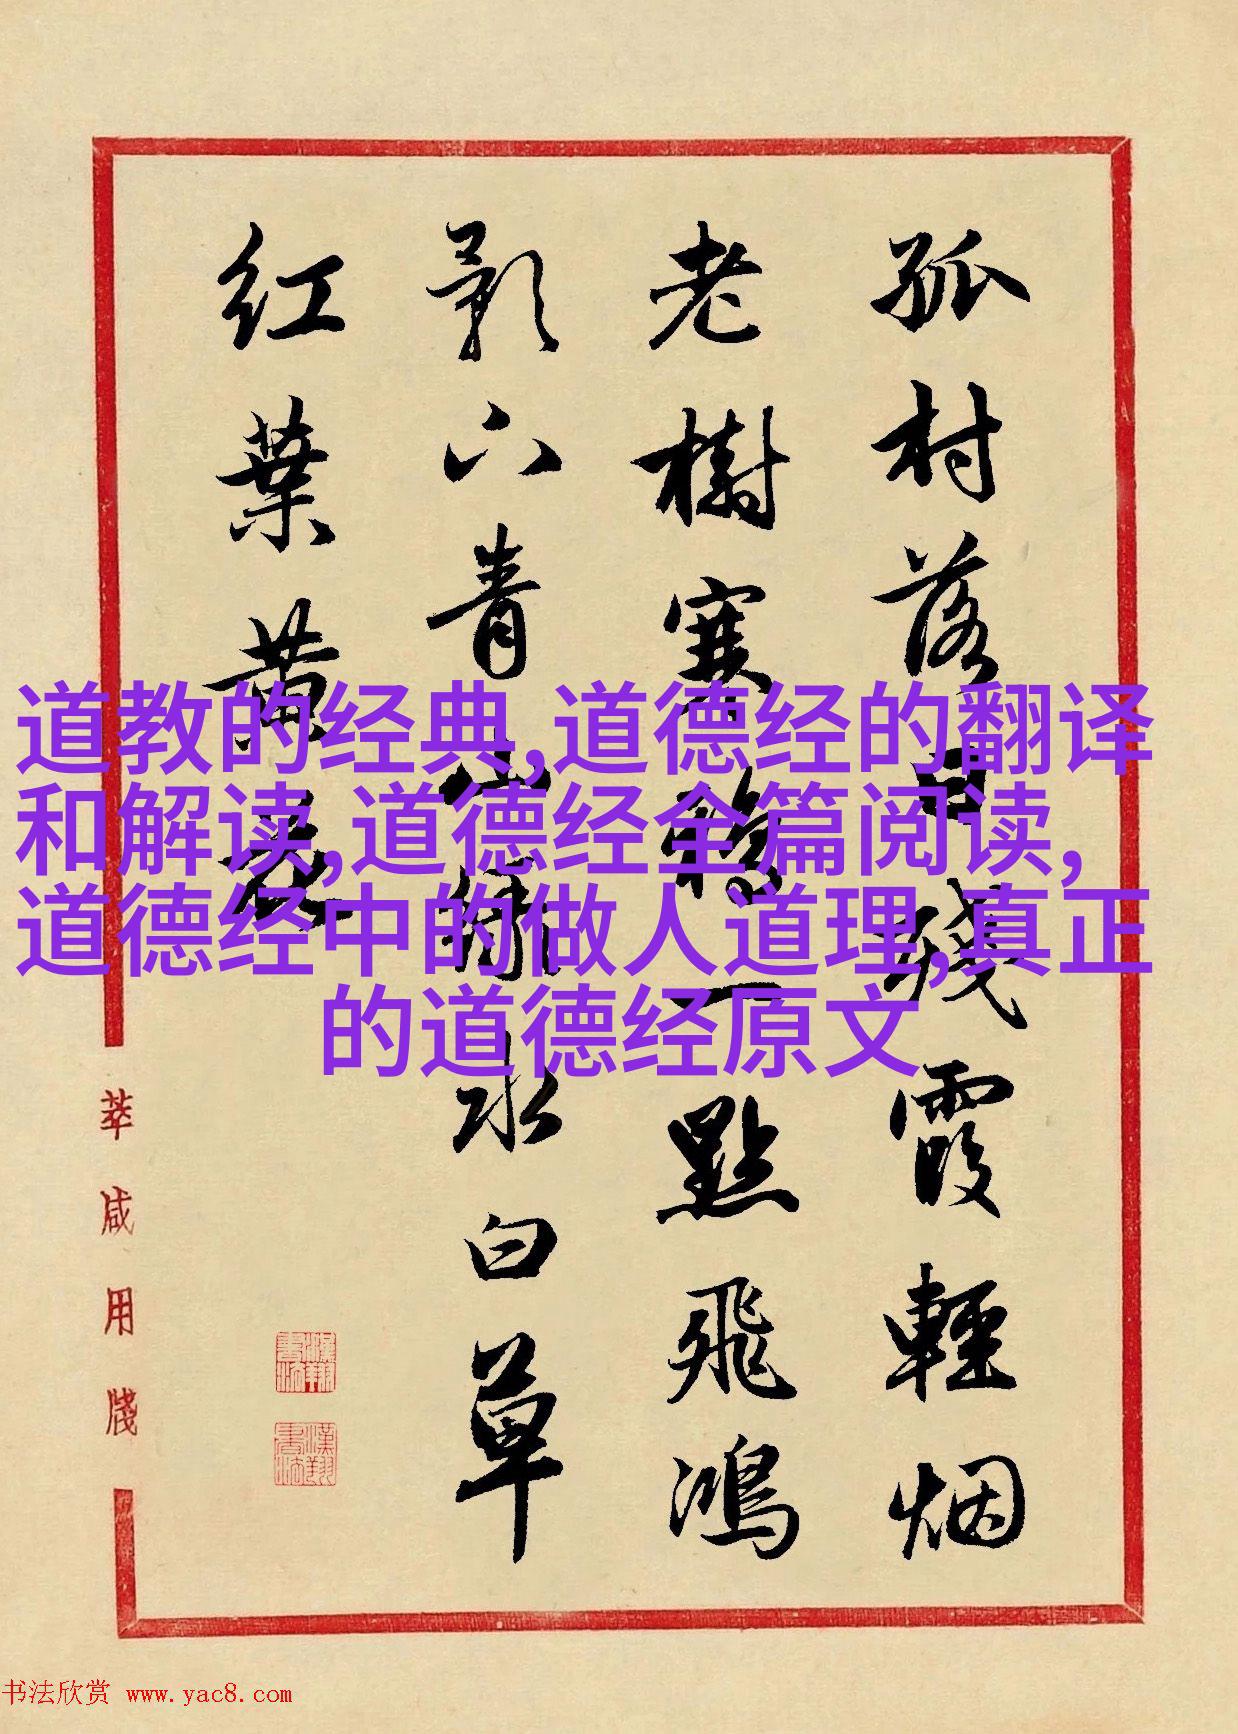 孤村落日残霞輕烟
老樹寒鴉一點飛鴻
影下青山绿水白草
红葉黄花
萃咸用牋
道教的经典,道德经的翻译
和解读,道德经全篇阅读,
道德经中的做人道理,真正
的道德经原文
书法欣赏 www.yac8.com